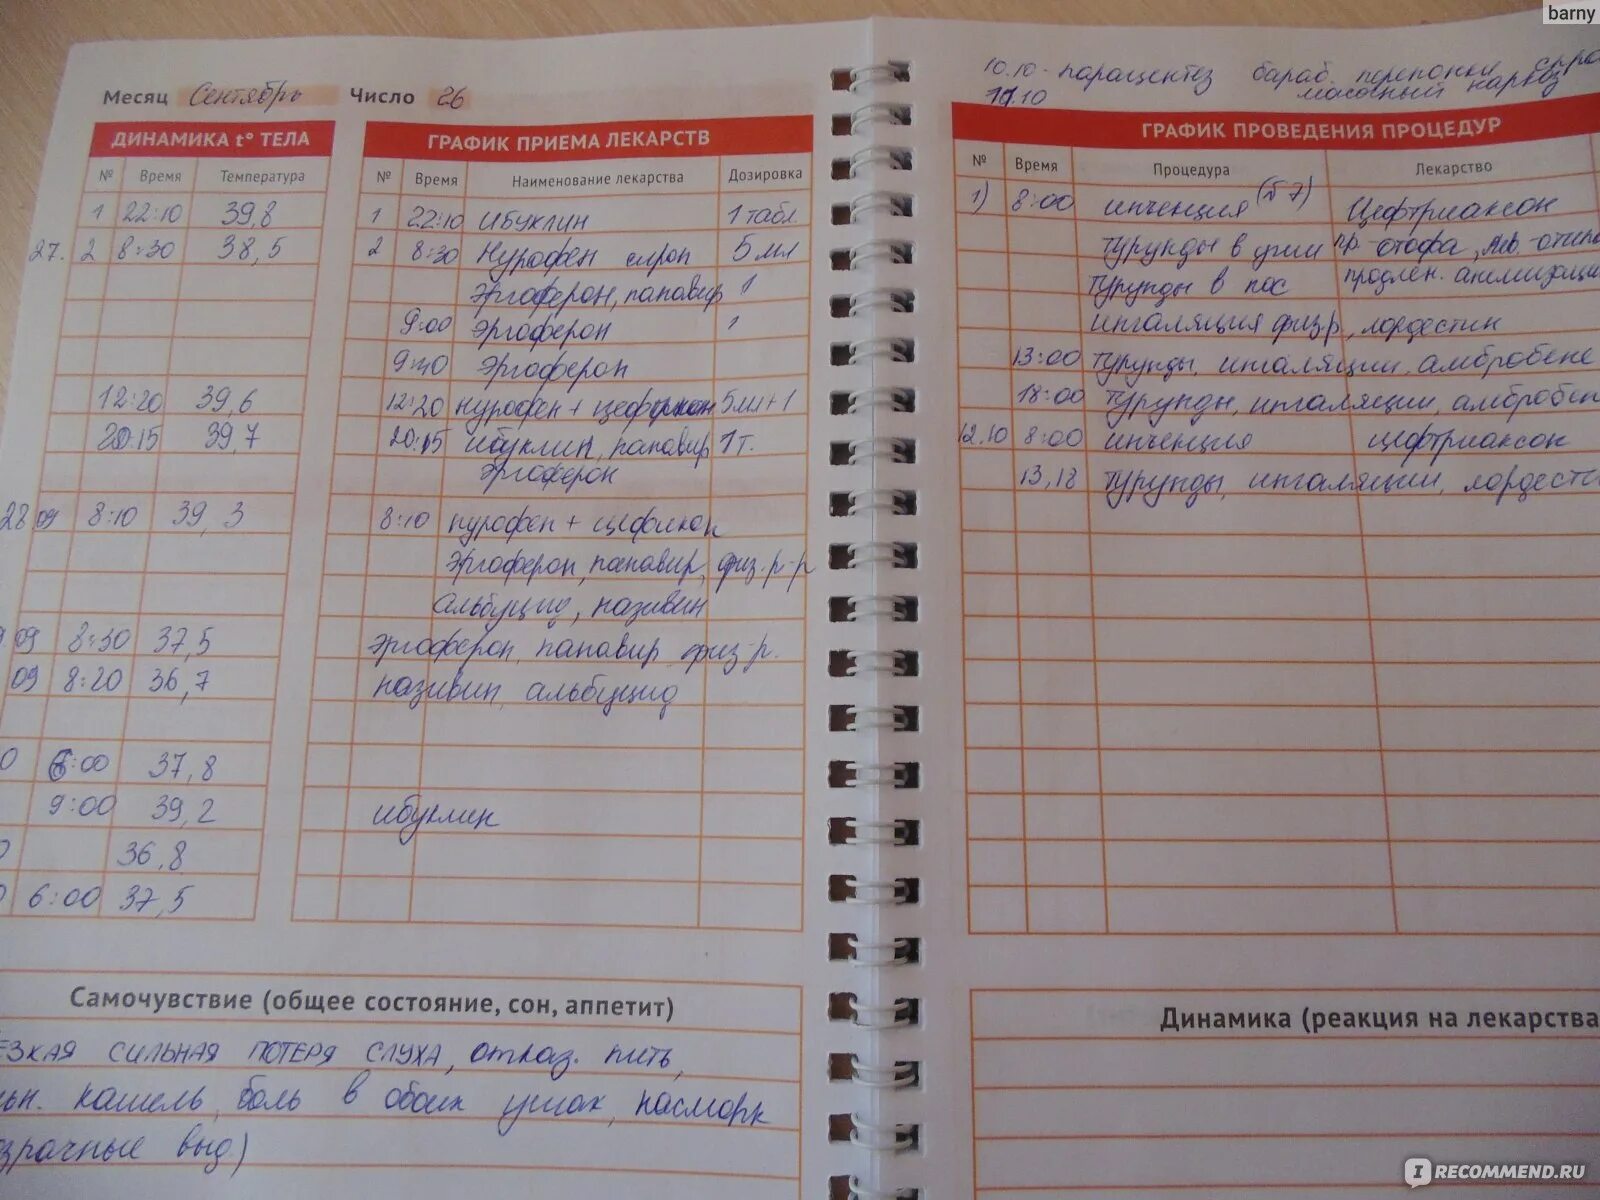 barny
Месяц Сентябрь Число 26
ДИНАМИКА t° ТЕЛА
№ Время Температура
1 22:10 39,8
27. 2 8:30 38,5
12:20 39,6
20:15 39,7
28 09 8:10 39,3
09 8:30 37,5
09 8:20 36,7
0 6:00 37,8
9:00 39,2
36,8
6:00 37,5
ГРАФИК ПРИЕМА ЛЕКАРСТВ
№ Время Наименование лекарства Дозировка
1 22:10 ибуклин 1 табл
2 8:30 Нурофен сироп 5 мл
Эргоферон, панавир 1
9:00 Эргоферон 1
9:30 Эргоферон
12:20 нурофен + 5мл+1
20:15 ибуклин, панавир 1т.
Эргоферон
8:10 нурофен + цефикон
Эргоферон, панавир, физ. р-р
альбуцид, називин
Эргоферон, панавир, физ-р.
називин, альбуцид
ибуклин
Самочувствие (общее состояние, сон, аппетит)
ЕЗКАЯ СИЛЬНАЯ ПОТЕРЯ СЛУХА, отказ. пить,
ьн. кашель, боль в обоих ушах, насморк
зрачные выд)
10.10 - парацентез бараб. перепонки
11.10 масочный наркоз
ГРАФИК ПРОВЕДЕНИЯ ПРОЦЕДУР
№ Время Процедура Лекарство
1) 8:00 инъекция (б 7) Цефтриаксон
турунды в уши пр. отофа,
Турунды в нос продлен. анемизаци
ингаляция физ-р, лордестин
13:00 турунды, ингаляции, амбробене
18:00 турунды, ингаляции, амбробен
12.10 8:00 инъекция цефтриаксон
13, 18 турунды, ингаляции, лордести
Динамика (реакция на лекарства
IRECOMMEND.RU